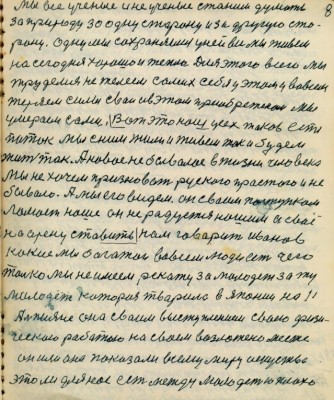 8
Мы все ученые и не ученые станим думать
за природу за одну сторону и за другую сто-
рону. Одну мы сохраняли у ней вси мы живем
на сегодня хорошо и тепло для этого всего мы
трудимся не жалеем самих себя у этом у вовсем
теряем сили сваи и в этом приобретаем мы
умераем сами. Вот это наш усех таков есть
поток мы с ним жили и живем так и будем
жить так. А новое не бывалое в жизни человека
мы не хочем признавать руского прастого и не
бывало. А мы его видем он своим поступком
ламает наше он не радуется нашим а своё
на арену ставить нам говарит иванов
какие мы богатои вовсем люди ест чего
только мы не имеем я скажу за молодеж за ту
молодеж которая тварила в Японии но !!
она своим выступлением своею физи-
ческою работою на своем возложено месте
они показали всему миру искуство
это ли для нас ест между молодежю плохо